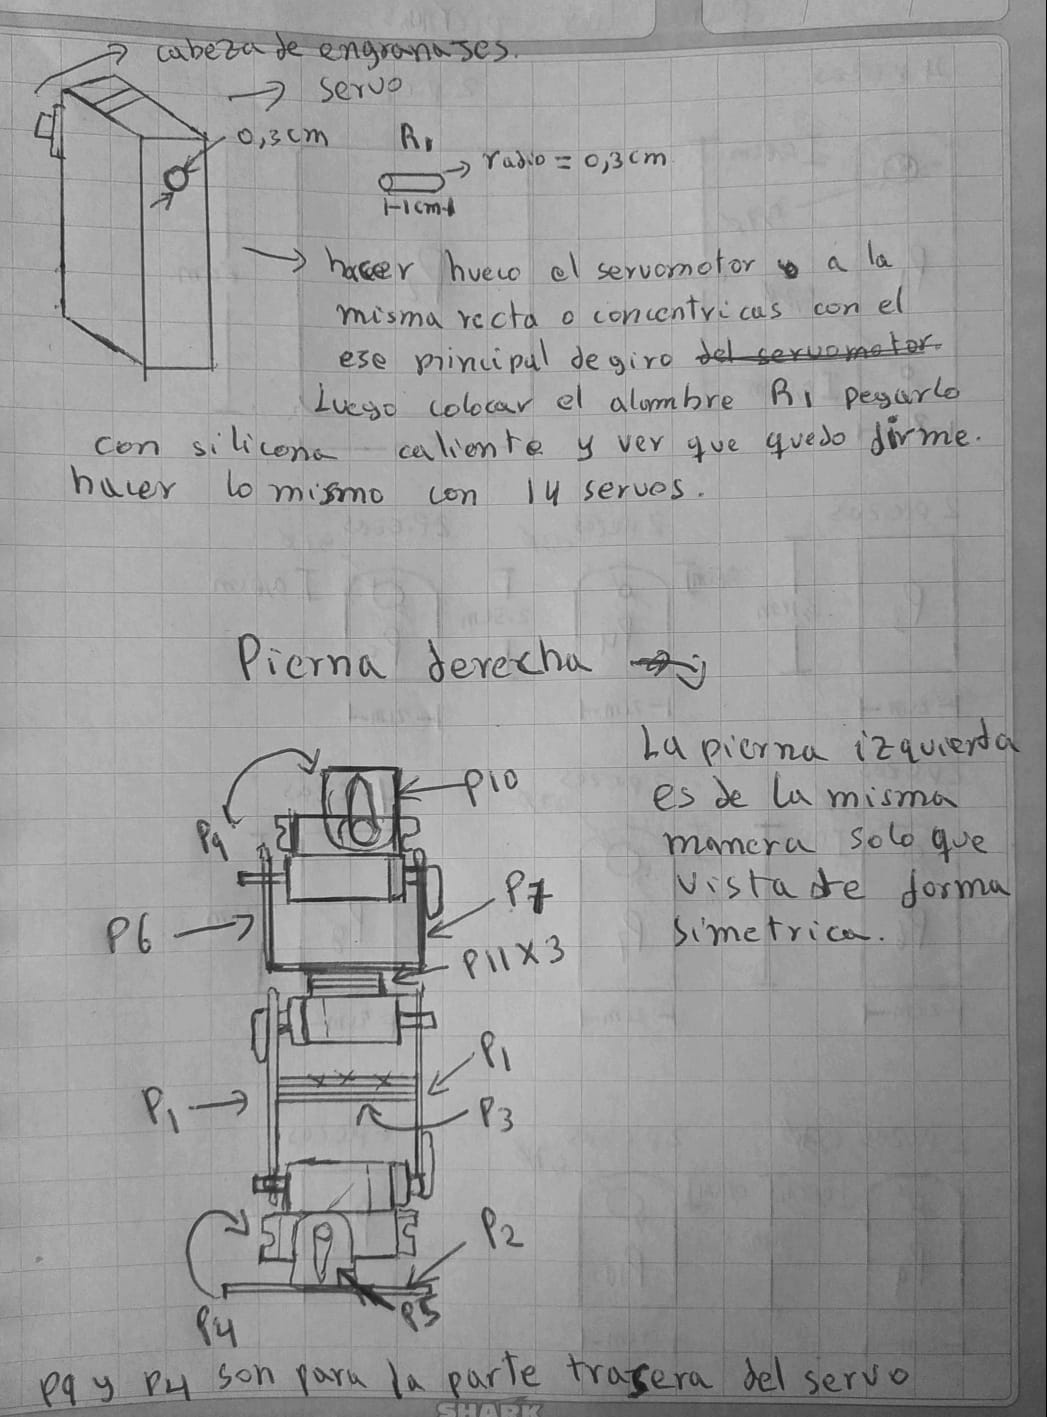 cabeza de engranajes.
servo
0,3cm
R1
radio = 0,3cm
1cm
hacer hueco el servomotor a la
misma recta o concentricas con el
eje principal de giro del servomotor.
Luego colocar el alambre R1 pegarlo
con silicona caliente y ver que quedo firme.
hacer lo mismo con 14 servos.
Pierna derecha
La pierna izquierda
es de la misma
manera solo que
vista de forma
simetrica.
P10
P9
P7
P6
P11x3
P1
P1
P3
P2
P5
P4
P9 y P4 son para la parte trasera del servo
SHARK